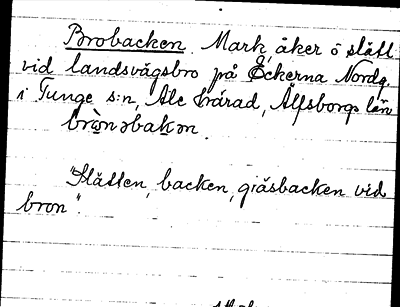 Brobacken. Mark, åker o slätt
vid landsvägsbro på Eckerna Nordg.
i Tunge s:n, Ale härad, Älfsborgs län
brònɔbakɔn.
"Slätten, backen, gräsbacken vid
bron".